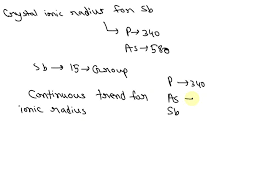 Crystal ionic radius for Sb
↳ P → 340
As → 580
Sb → 15 → Group
P → 340
Continuous trend for As -
ionic radius Sb